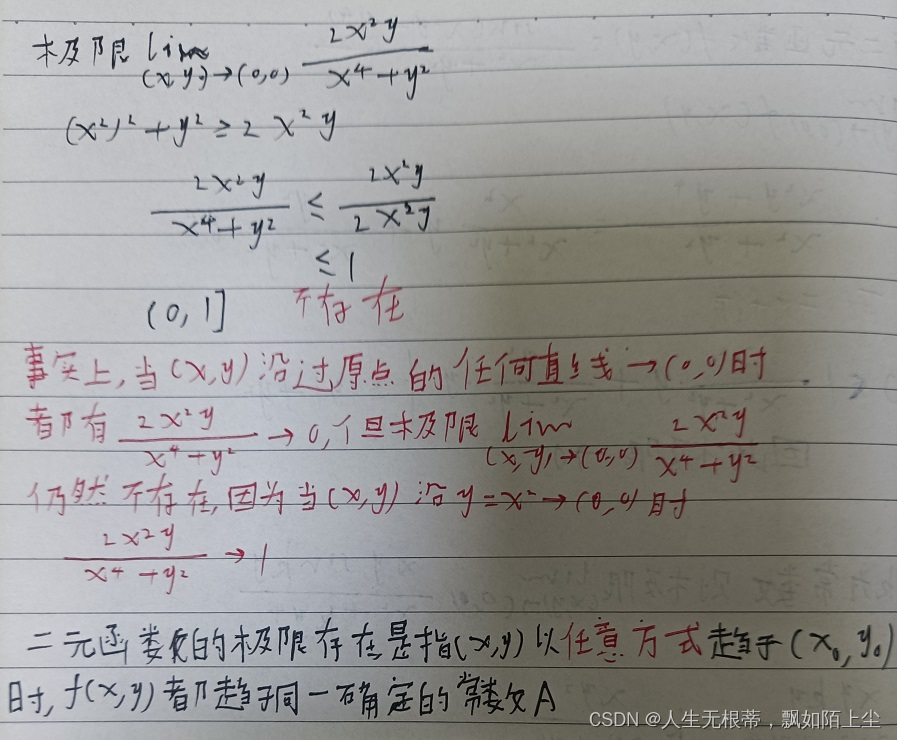 极限 lim (x,y)→(0,0) 2x²y/(x⁴+y²)
(x²)²+y²≥2x²y
2x²y/(x⁴+y²) ≤ 2x²y/(2x²y)
≤1
(0,1] 不存在
事实上,当(x,y)沿过原点的任何直线→(0,0)时
都有 2x²y/(x⁴+y²) →0,但极限 lim (x,y)→(0,0) 2x²y/(x⁴+y²)
仍然不存在,因为当(x,y)沿y=x²→(0,0)时
2x²y/(x⁴+y²) →1
二元函数的极限存在是指(x,y)以任意方式趋于(x₀,y₀)
时,f(x,y)都趋于同一确定的常数A
CSDN @人生无根蒂，飘如陌上尘